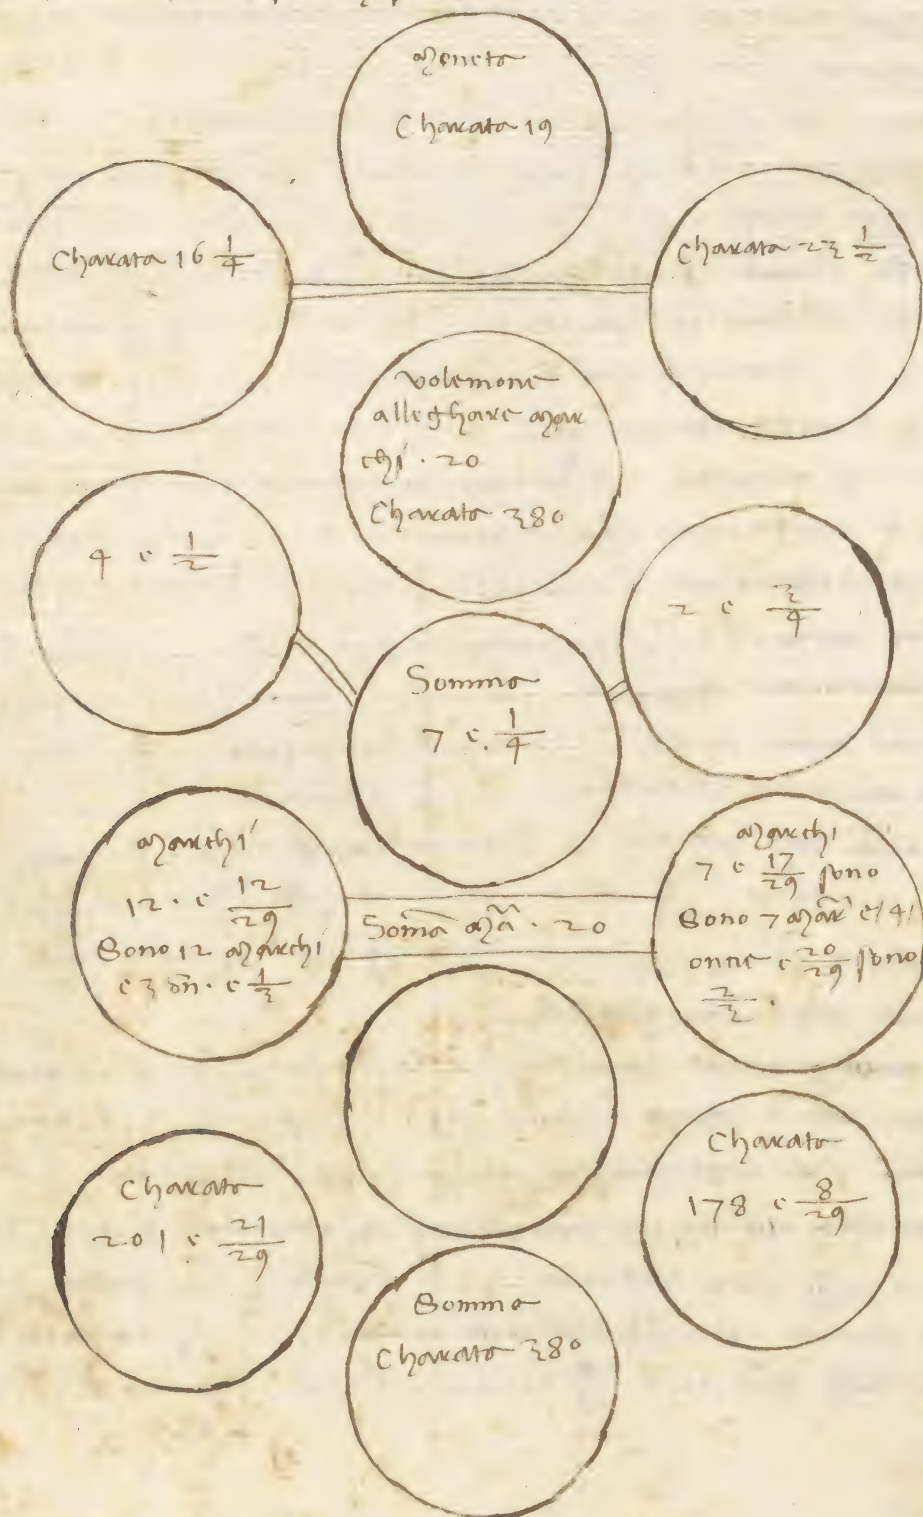 Moneta
Charata 19
Charata 16 1/4
Charata 23 1/2
Volemone
alleghare Mar
chi · 20
Charata 380
4 e 1/2
2 e 3/4
Somma
7 e. 1/4
Marchi
12 · e 12/29
Sono 12 Marchi
e 3 on̄. e 1/3
Som̄a Ma · 20
Marchi
7 e 17/29 sono
Sono 7 Mar̄ e/4/
oncie e 20/29 sono
2/3 ·
Charata
201 e 21/29
Charata
178 e 8/29
Somma
Charata 380